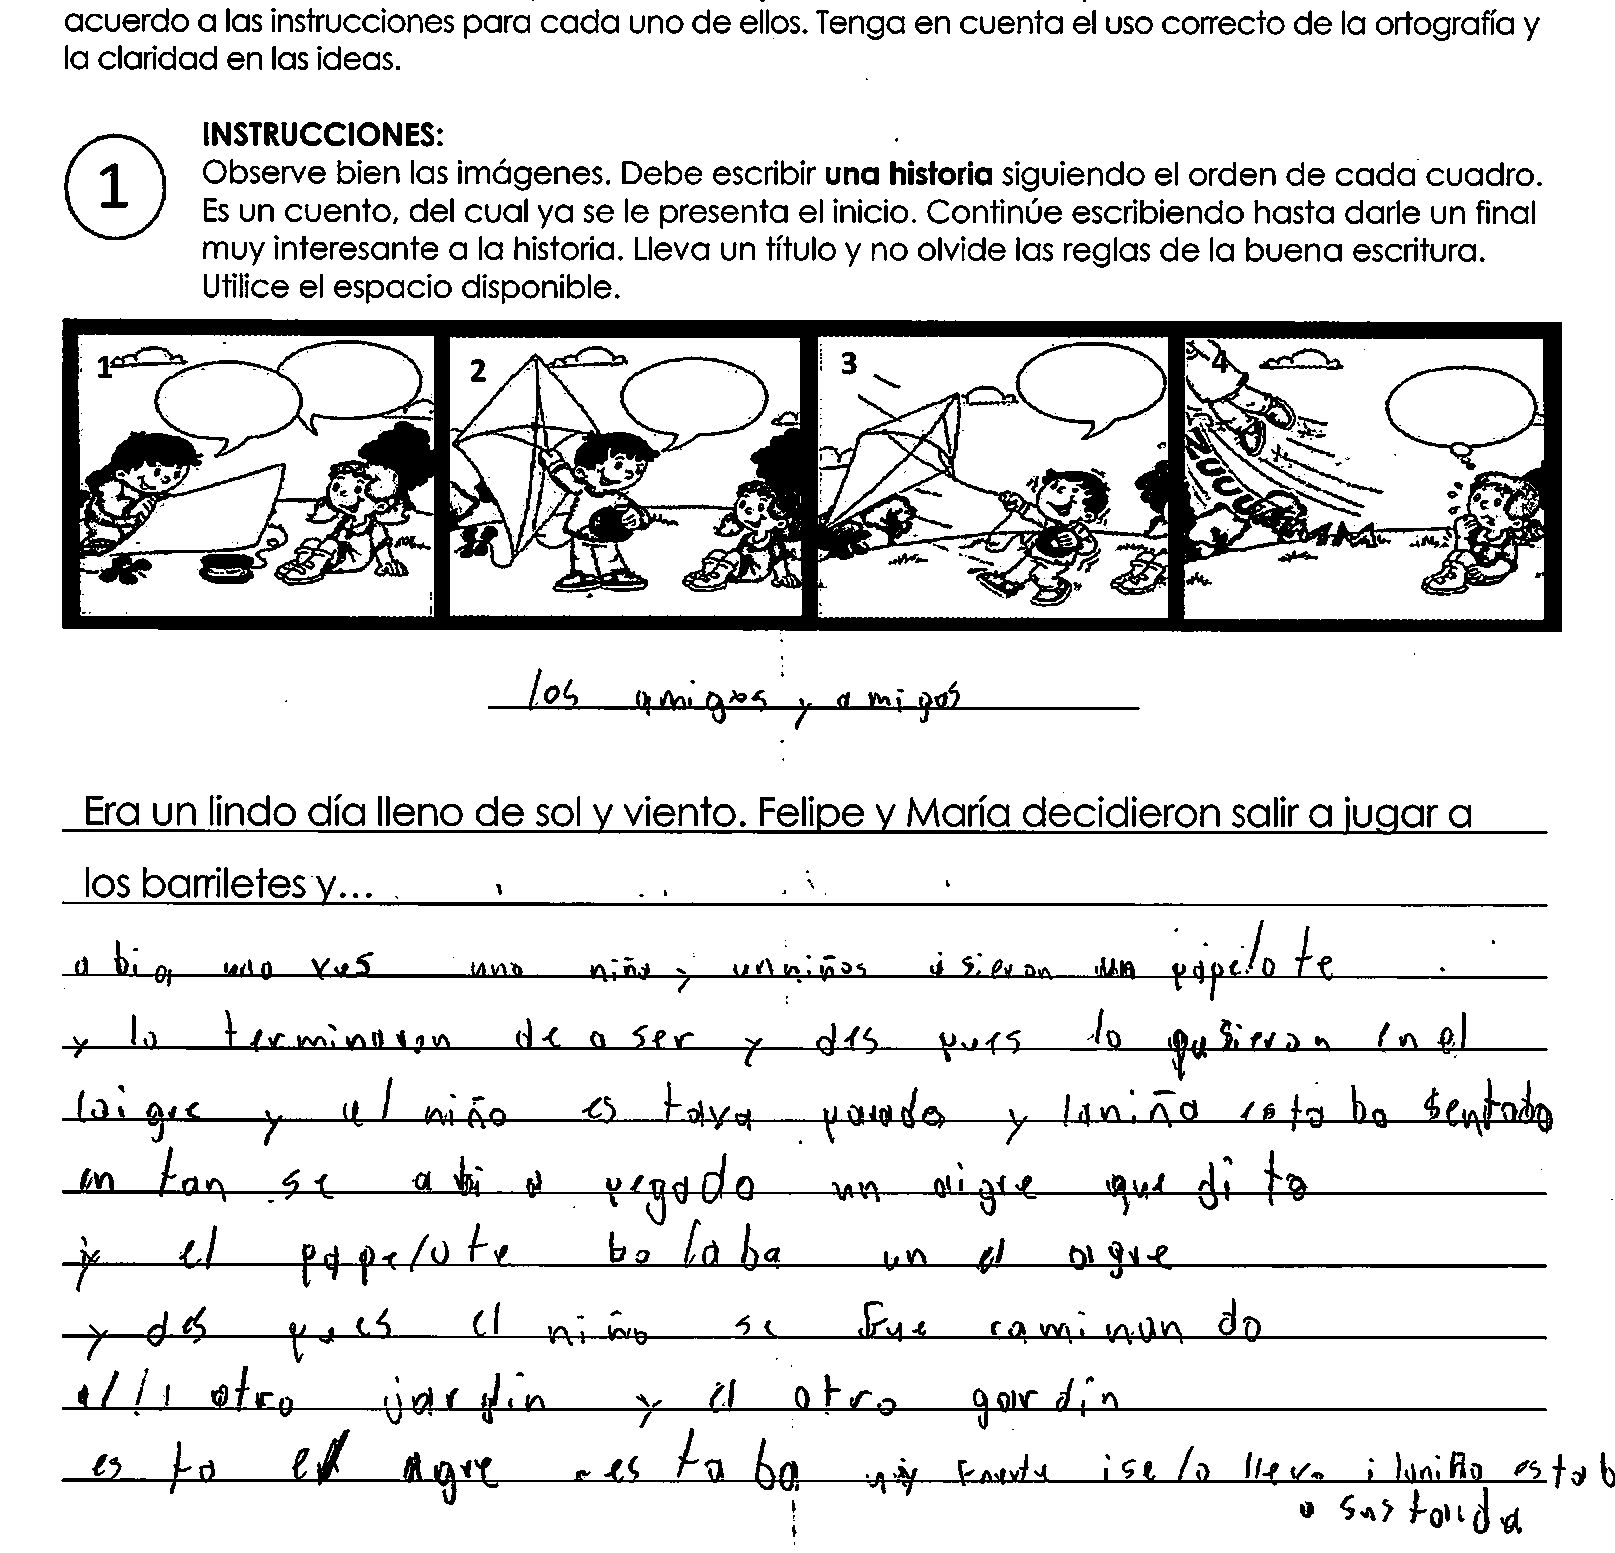 acuerdo a las instrucciones para cada uno de ellos. Tenga en cuenta el uso correcto de la ortografía y
la claridad en las ideas.
1
INSTRUCCIONES:
Observe bien las imágenes. Debe escribir una historia siguiendo el orden de cada cuadro.
Es un cuento, del cual ya se le presenta el inicio. Continúe escribiendo hasta darle un final
muy interesante a la historia. Lleva un título y no olvide las reglas de la buena escritura.
Utilice el espacio disponible.
1 2 3 4
ZUUU
los amigos y amigos
Era un lindo día lleno de sol y viento. Felipe y María decidieron salir a jugar a
los barriletes y...
abia una ves una niña y un niños isieron un papelote
y lo terminaron de aser y des pues lo pusieron en el
aigre y el niño es tava parado y la niña estaba sentado
en tan se abi a pegado un aigre que dito
y el papelote bolaba un el aigre
y des pues el niño se fue caminan do
alli otro jardin y el otro gardin
es ta el agre estaba muy fuerte i se lo llevo i la niña estab
a sustaida